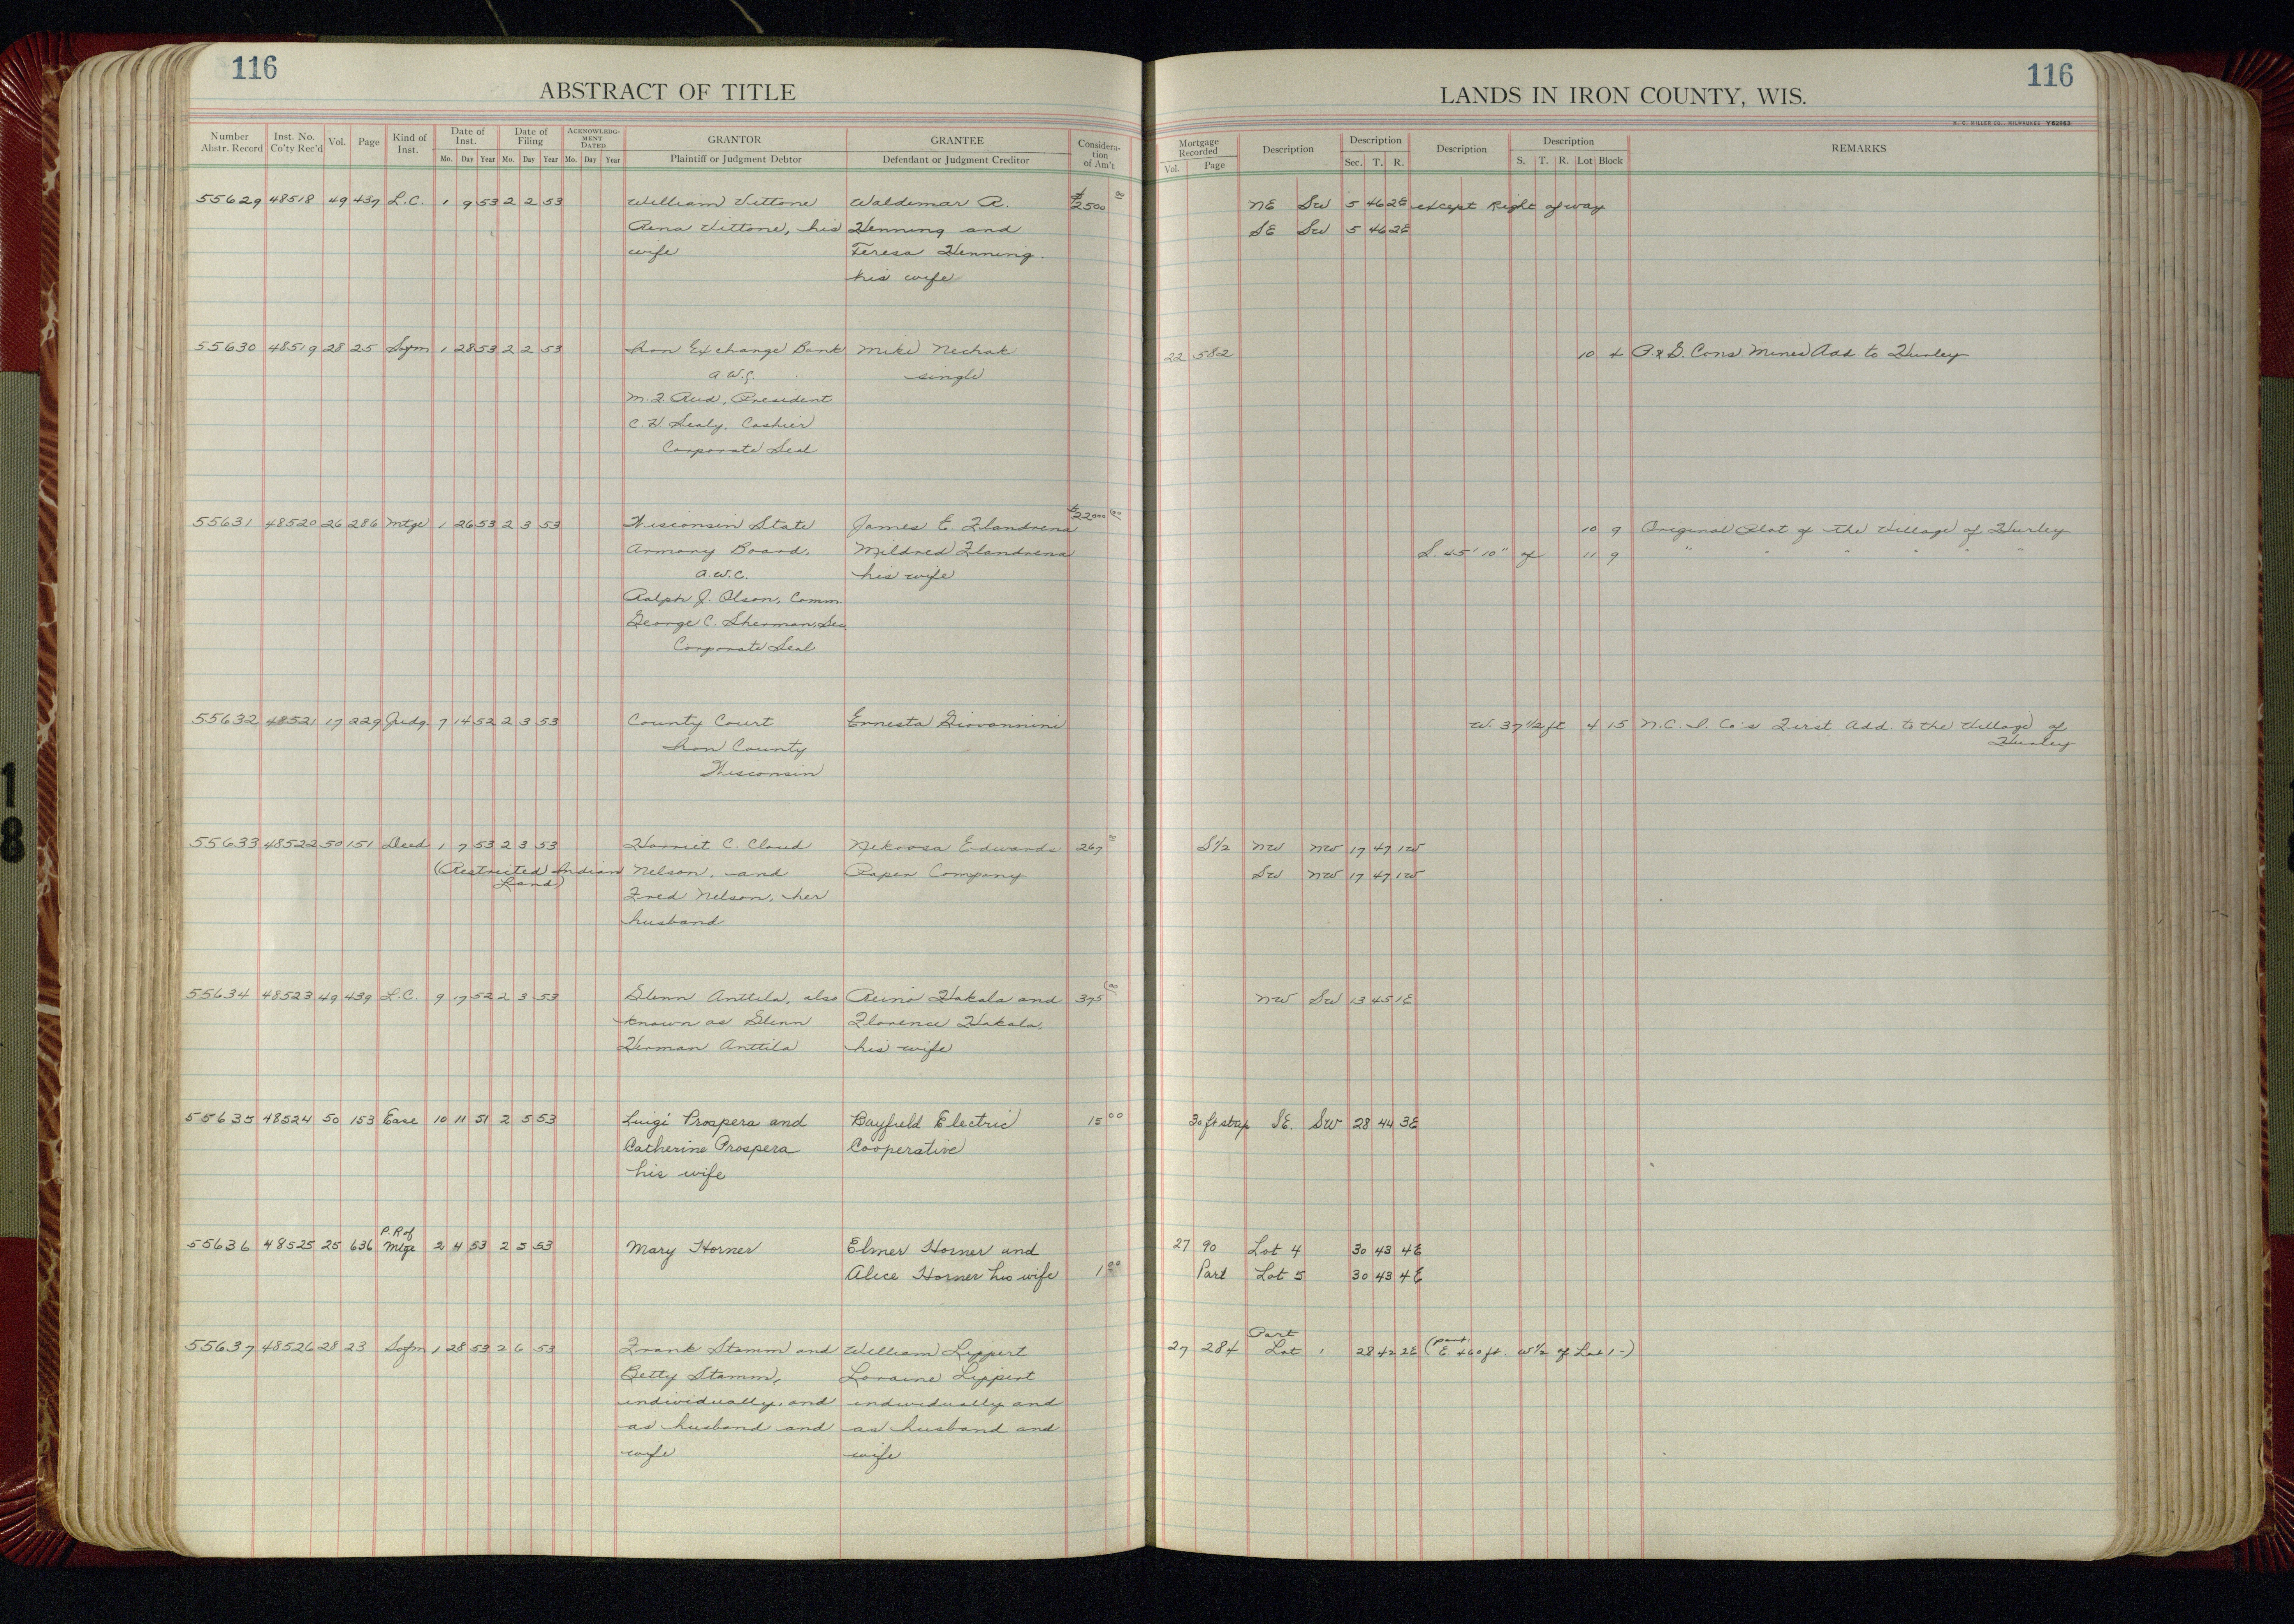 116
ABSTRACT OF TITLE
Number Abstr. Record
Inst. No. Co'ty Rec'd
Vol.
Page
Kind of Inst.
Date of Inst.
Mo. Day Year
Date of Filing
Mo. Day Year
ACKNOWLEDG-MENT DATED
Mo. Day Year
GRANTOR
Plaintiff or Judgment Debtor
GRANTEE
Defendant or Judgment Creditor
Considera-tion of Am't
116
LANDS IN IRON COUNTY, WIS.
H. C. MILLER CO., MILWAUKEE Y62963
Mortgage Recorded
Vol. Page
Description
Description
Sec. T. R.
Description
Description
S. T. R. Lot Block
REMARKS
55629 48518 49 437 L.C. 1 9 53 2 2 53 William Vittone Waldemar A. $2500 00 NE SW 5 46 2E except Right of way
Rena Vittone, his Henning and SE SW 5 46 2E
wife Teresa Henning.
his wife
55630 48519 28 25 Sofm 1 28 53 2 2 53 Iron Exchange Bank Mike Nechak 22 582 10 4 P. & G. Cons. Mines Add to Hurley
single
M. J. Rud, President
C. H. Sealy, Cashier
Corporate Seal
55631 48520 26 286 Mtge 1 26 53 2 3 53 Wisconsin State James E. Flandrena $22000 00 10 9 Original Plat of the Village of Hurley
Armory Board, Mildred Flandrena S. 45' 10" of 11 9 " " " " " "
A.W.C. his wife
Ralph J. Olson, Comm.
George C. Sherman, Sec.
Corporate Seal
55632 48521 17 229 Judg. 7 14 52 2 3 53 County Court Ernesta Giovannini W. 37 1/2 ft 4 15 N.C. I. Co's First Add. to the Village of
Iron County Hurley
Wisconsin
55633 48522 50 151 Deed 1 7 53 2 3 53 Harriet C. Cloud Nekoosa Edwards 267 00 S1/2 NW NW 17 47 1W
(Restricted Indian Nelson, and Paper Company SW NW 17 47 1W
Land) Fred Nelson, her
husband
55634 48523 49 439 L.C. 9 17 52 2 3 53 Glenn Anttila, also Reino Hakala and 375 00 NW SW 13 45 1E
known as Glenn Florence Hakala,
Herman Anttila his wife
55635 48524 50 153 Ease 10 11 51 2 5 53 Luigi Prospera and Bayfield Electric 15 00 30 ft strip SE. SW 28 44 3E
Catherine Prospera Cooperative
his wife
P.R of
55636 48525 25 636 Mtge 2 4 53 2 5 53 Mary Horner Elmer Horner and 27 90 Lot 4 30 43 4E
Alice Horner his wife 1 00 Part Lot 5 30 43 4E
Part
55637 48526 28 23 Sofm 1 28 53 2 6 53 Frank Stamm and William Lippert 27 284 Lot 1 28 42 2E (part E. 460 ft. W 1/2 of Lot 1-)
Betty Stamm, Loraine Lippert
individually, and individually and
as husband and as husband and
wife wife
18